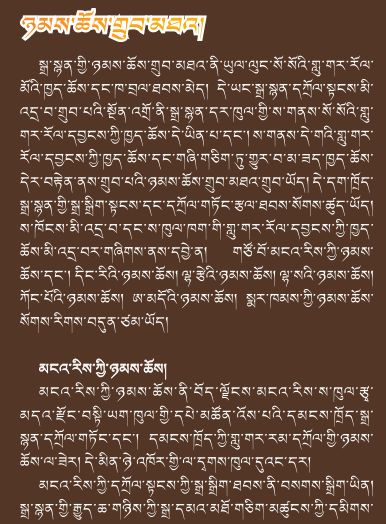 ཉམས་ཆོས་གྲུབ་མཐའ།
སྒྲ་སྙན་གྱི་ཉམས་ཆོས་གྲུབ་མཐའ་ནི་ཡུལ་ལུང་སོ་སོའི་གླུ་གར་རོལ་
མོའི་ཁྱད་ཆོས་དང་ཁ་བྲལ་ཐབས་མེད། དེ་ཡང་སྒྲ་སྙན་དཀྲོལ་སྟངས་མི་
འདྲ་བ་གྲུབ་པའི་སྔོན་འགྲོ་ནི་སྒྲ་སྙན་དར་ཁུལ་གྱི་ས་གནས་སོ་སོའི་གླུ་
གར་རོལ་དབྱངས་ཀྱི་ཁྱད་ཆོས་དེ་ཡིན་པ་དང་། ས་གནས་དེ་གའི་གླུ་གར་
རོལ་དབྱངས་ཀྱི་ཁྱད་ཆོས་དང་གཞི་གཅིག་ཏུ་གྱུར་བ་མ་ཟད་ཁྱད་ཆོས་
དེར་བརྟེན་ནས་གྲུབ་པའི་ཉམས་ཆོས་གྲུབ་མཐའ་གྲུབ་ཡོད། དེ་དག་ཁྲོད་
སྒྲ་སྙན་གྱི་སྒྲ་སྒྲིག་སྟངས་དང་དཀྲོལ་གཏོང་རྩལ་ཐབས་སོགས་ཚུད་ཡོད།
ས་ཁོངས་མི་འདྲ་བ་དང་ས་ཁུལ་ཁག་གི་གླུ་གར་རོལ་དབྱངས་ཀྱི་ཁྱད་
ཆོས་མི་འདྲ་བར་གཞིགས་ནས་དབྱེ་ན། གཙོ་བོ་མངའ་རིས་ཀྱི་ཉམས་
ཆོས་དང་། དིང་རིའི་ཉམས་ཆོས། ལྷ་རྩེའི་ཉམས་ཆོས། ལྷ་སའི་ཉམས་ཆོས།
ཀོང་པོའི་ཉམས་ཆོས། ཨ་མདོའི་ཉམས་ཆོས། སྨར་ཁམས་ཀྱི་ཉམས་ཆོས་
སོགས་རིགས་བདུན་ཙམ་ཡོད།
མངའ་རིས་ཀྱི་ཉམས་ཆོས།
མངའ་རིས་ཀྱི་ཉམས་ཆོས་ནི་བོད་ལྗོངས་མངའ་རིས་ས་ཁུལ་རྩྭ་
མདའ་རྫོང་བསྟི་ཡག་ཁུལ་གྱི་དཔེ་མཚོན་འོས་པའི་དམངས་ཁྲོད་སྒྲ་
སྙན་དཀྲོལ་གཏོང་དང་། དམངས་ཁྲོད་ཀྱི་གླུ་གར་རམ་དཀྲོལ་གྱི་ཉམས་
ཆོས་ལ་ཟེར། དེ་མིན་ཉེ་འཁོར་གྱི་ལ་དྭགས་ཁུལ་དུའང་དར།
མངའ་རིས་ཀྱི་དཀྲོལ་སྟངས་ཀྱི་སྒྲ་སྒྲིག་ཐབས་ནི་བསགས་སྒྲིག་ཡིན།
སྒྲ་སྙན་གྱི་རྒྱུད་ཆ་གཉིས་ཀྱི་སྒྲ་དམའ་མཐོ་གཅིག་མཚུངས་ཀྱི་དམིགས་